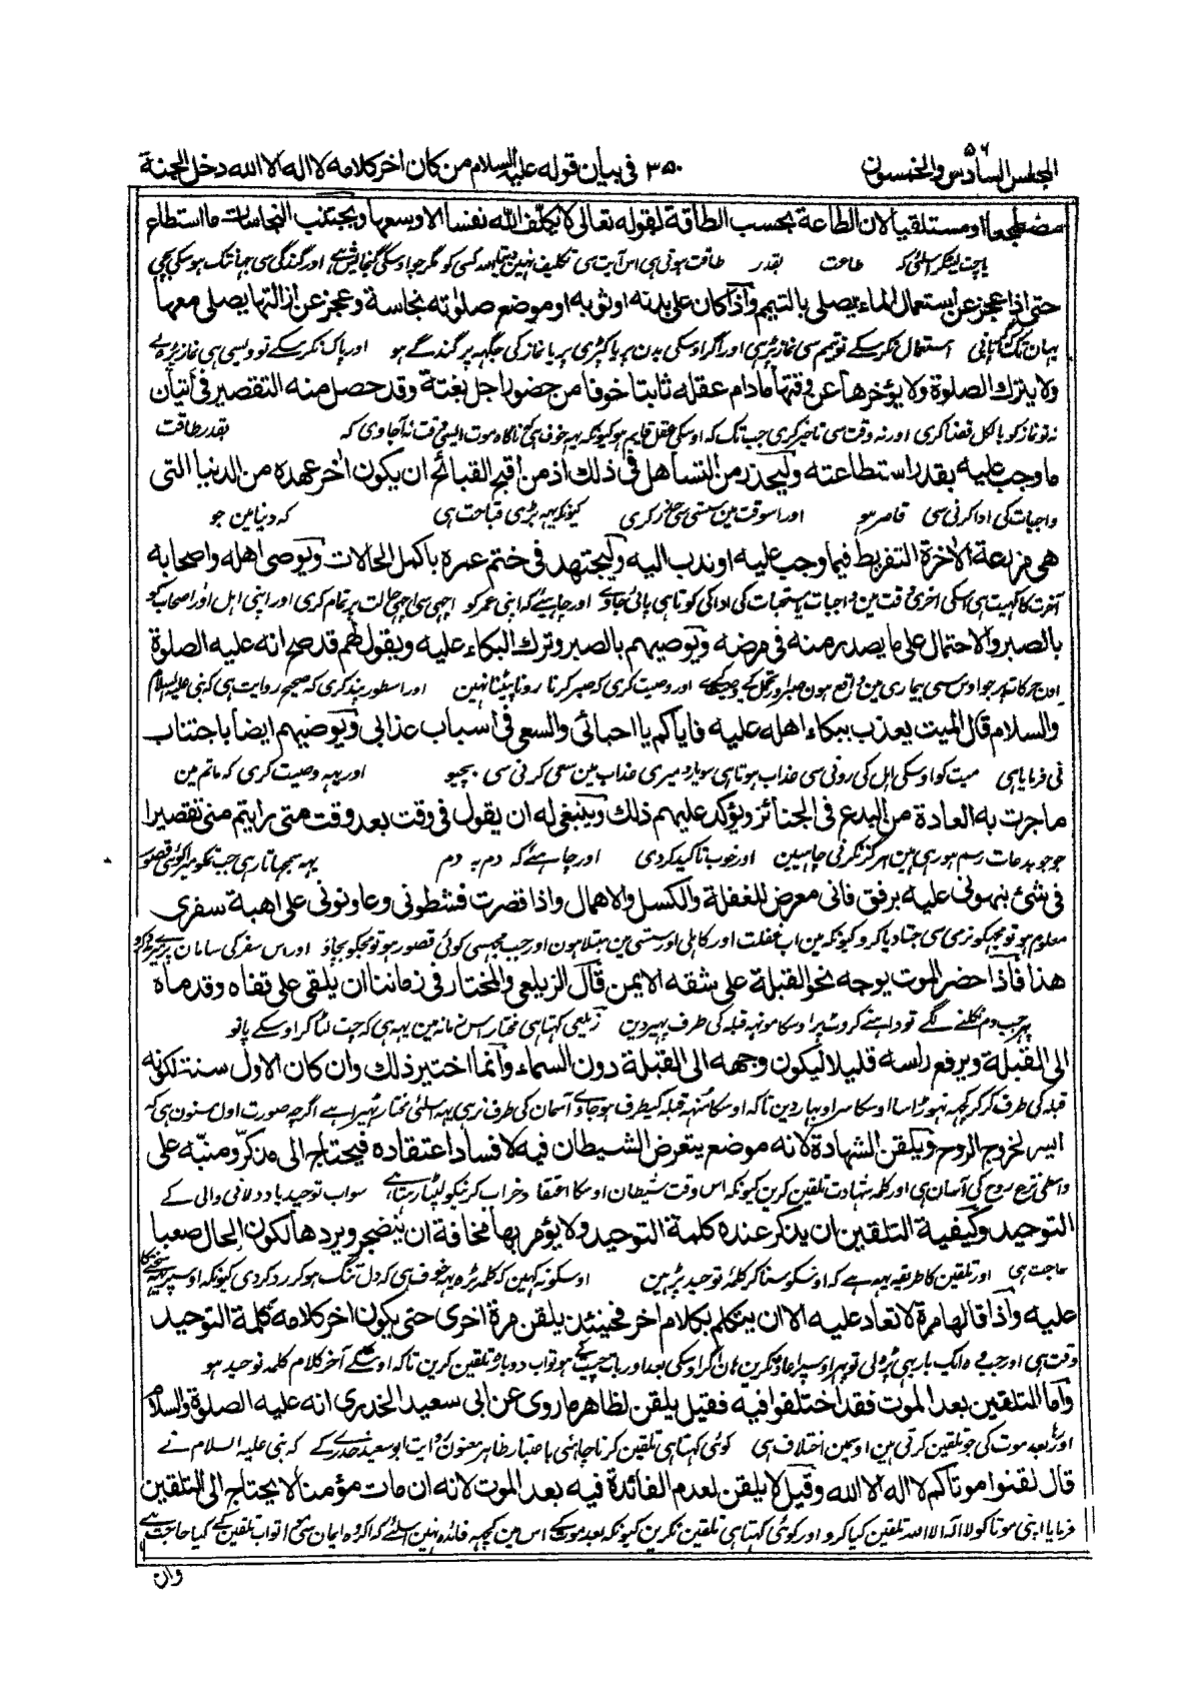 المجلس السادس والخمسون ۵۶
۳۵۰ فى بيان قوله عليه السلام من كان اخر كلامه لا اله الا الله دخل الجنة
مضطجعا او مستلقيا لان الطاعة بحسب الطاقة لقوله تعالى لا يكلف الله نفسا الا وسعها ويجتنب النجاسات ما استطاع
یا چت لیٹکر اسلئی کہ طاعت بقدر طاقت ہوتی ہی اس آیت سی تکلیف نہین دیتا اللہ کسی کو مگر جو اوسکی گنجایش ہے اور گندگی سی جہانتک ہوسکی بچی
حتى اذا عجز عن استعمال الماء يصلى بالتيمم واذا كان على بدنه او ثوبه او موضع صلوته نجاسة وعجز عن ازالتها يصلى معها
یہان تک کہ اگر پانی استعمال نکر سکے تو تیمم سی نماز پڑہی اور اگر اوسکی بدن پر یا کپڑی پر یا نماز کی جگہہ پر گندگے ہو اور پاک نکر سکے تو ویسی ہی نماز پڑہے
ولا يترك الصلوة ولا يؤخرها عن وقتها ما دام عقله ثابتا خوفا من حضور اجل بغتة وقد حصل منه التقصير فى اتيان
نہ تو نماز کو بالکل قضا کری اور نہ وقت سی تاخیر کری جب تک کہ اوسکی عقل قایم ہو کیونکہ یہہ خوف ہی کہ ناگاہ موت ایسی وقت نہ آجاوی کہ بقدر طاقت
ما وجب عليه بقدر استطاعته وليحذر من التساهل فى ذلك اذ من اقبح القبائح ان يكون اخر عهده من الدنيا التى
واجبات کی ادا کرنی سی قاصر ہو اور اسوقت مین سستی سی حذر کری کیونکہ یہہ بڑی قباحت ہی کہ دنیا مین جو
هى مزرعة الاخرة التفريط فيما وجب عليه او ندب اليه وليجتهد فى ختم عمره باكمل الحالات ويوصى اهله واصحابه
آخرت کا کہیت ہی اسکی آخری وقت مین واجبات یا مستحبات کی ادا کی کوتاہی پائی جاوے اور چاہیئے کہ اپنی عمر کو اچہی سی اچہی حالت پر تمام کری اور اپنی اہل اور اصحاب کو
بالصبر والاحتمال على ما يصدر منه فى مرضه ويوصيهم بالصبر وترك البكاء عليه ويقول لهم قد صح انه عليه الصلوة
اون حرکات پر جو اوس سی بیماری مین واقع ہون صبر اور تحمل کی اور وصیت کری کہ صبر کرنا رونا پیٹنا نہین اور اسطور پند کری کہ صحیح روایت ہی کہ نبی علیہ السلام
والسلام قال الميت يعذب ببكاء اهله عليه فاياكم يا احبائى والسعى فى اسباب عذابى ويوصيهم ايضا باجتناب
نی فرمایا ہی میت کو اوسکی اہل کی رونی سی عذاب ہوتا ہی سو یارو میری عذاب مین سعی کرنی سی بچیو اور یہہ وصیت کری کہ ماتم مین
ما جرت به العادة من البدع فى الجنائز ويؤكد عليهم ذلك وينبغى له ان يقول فى وقت بعد وقت متى رايتم منى تقصيرا
جو جو بدعات رسم ہو رہی ہین ہرگز نکرنی چاہیین اور خوب تاکید کردی اور چاہیئے کہ دم بہ دم یہہ سمجہاتا رہی جب تمکو میرا کوئی قصور
فى شئ نبهونى عليه برفق فانى معرض للغفلة والكسل والاهمال واذا قصرت فنشطونى وعاونونى على اهبة سفرى
معلوم ہو تو مجہکو نرمی سی جتا دیا کرو کیونکہ مین اب غفلت اور کاہلی اور سستی مین مبتلا ہون اور جب مجہسی کوئی قصور ہو تو مجہکو اور اس سفر کی سامان پر
هذا فاذا حضر الموت يوجه نحو القبلة على شقه الايمن قال الزيلعى والمختار فى زماننا ان يلقى على قفاه وقدماه
پہر جب دم نکلنے لگے تو داہنے کروٹ پر اوسکا مونہہ قبلہ کی طرف پہیردین زیلعی کہتا ہی مختار اس زمانہ مین یہہ ہی کہ چت لٹا کر اوسکے پانو
الى القبلة ويرفع راسه قليلا ليكون وجهه الى القبلة دون السماء وانما اختير ذلك وان كان الاول سنة لكونه
قبلہ کی طرف کر کر کچہہ تہوڑا سا اوسکا سر اوبہار دین تاکہ اوسکا منہہ قبلہ کیطرف ہو جاوے آسمان کی طرف نرہی یہہ اسلئی مختار ہے اگرچہ صورت اول مسنون ہی کہ
ايسر لخروج الروح ويلقن الشهادة لانه موضع يتعرض الشيطان فيه لافساد اعتقاده فيحتاج الى مذكر ومنبه على
واسطی نزع روح کی آسان ہی اور کلمہ شہادت تلقین کرین کیونکہ اس وقت شیطان اوسکا اعتقاد خراب کرنیکو لپٹا رہتا ہے سو اب توحید یاد دلانی والی کے
التوحيد وكيفية التلقين ان يذكر عنده كلمة التوحيد ولا يؤمر بها مخافة ان يتضجر ويردها لكون الحال صعبا
حاجت ہی اور تلقین کا طریقہ یہہ ہے کہ اوسکو سنا کر کلمۂ توحید پڑہین اوسکو نہ کہین کہ کلمہ پڑہ یہہ خوف ہی کہ دل تنگ ہو کر رد کردی کیونکہ اوسپر
عليه واذا قالها مرة لا تعاد عليه الا ان يتكلم بكلام اخر فحينئذ يلقن مرة اخرى حتى يكون اخر كلامه كلمة التوحيد
وقت ہی اور جب وہ ایک بار پڑہ لی تو پہر اوسپر اعادہ نکرین ہان اگر اوسکی بعد اور بات چیت کی ہو تو اب دوبارہ تلقین کرین تاکہ اوسکے آخر کلام کلمہ توحید ہو
واما التلقين بعد الموت فقد اختلفوا فيه فقيل يلقن لظاهر ما روى عن ابى سعيد الخدرى انه عليه الصلوة والسلام
اور بعد موت کی جو تلقین کرتی ہین اوسمین اختلاف ہی کوئی کہتا ہی تلقین کرنا چاہئی باعتبار ظاہر معنون روایت ابو سعید خدری کے کہ نبی علیہ السلام نے
قال لقنوا موتاكم لا اله الا الله وقيل لا يلقن لعدم الفائدة فيه بعد الموت لانه ان مات مؤمنا لا يحتاج الى التلقين
فرمایا اپنی موتا کو لا الہ الا اللہ تلقین کیا کرو اور کوئی کہتا ہی تلقین نکرین کیونکہ بعد موت کے اس مین کچہہ فائدہ نہین اسلئے کہ اگر وہ ایمان سی موا تو اب تلقین کے کیا حاجت ہے
وان